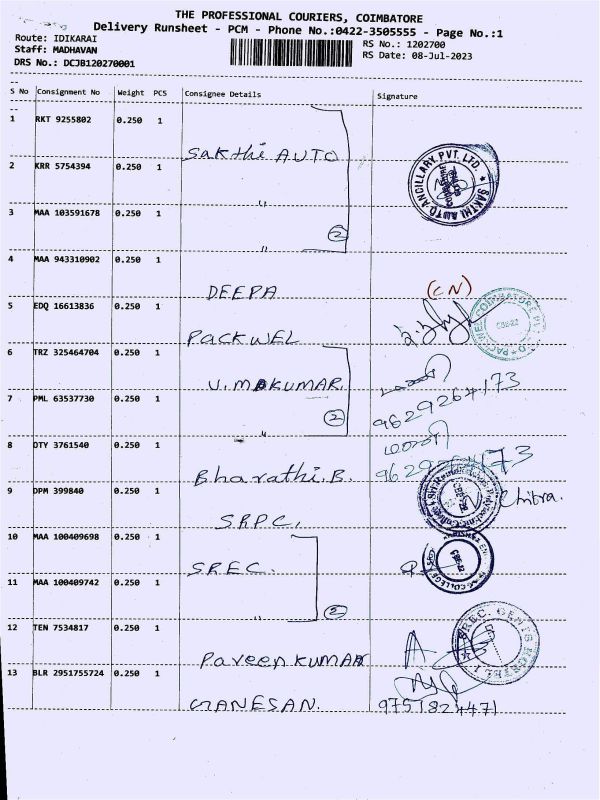 THE PROFESSIONAL COURIERS, COIMBATORE
Delivery Runsheet - PCM - Phone No.:0422-3505555 - Page No.:1
Route: IDIKARAI
RS No.: 1202700
Staff: MADHAVAN
RS Date: 08-Jul-2023
DRS No.: DCJB120270001
S No Consignment No Weight PCS Consignee Details Signature
1 RKT 9255802 0.250 1
Sakthi AUTO
2 KRR 5754394 0.250 1
SAKTHI AUTO ANCILLARY PVT. LTD.
"
3 MAA 103591678 0.250 1
" 2
4 MAA 943310902 0.250 1
DEEPA (CN)
5 EDQ 16613836 0.250 1
PACKWEL
6 TRZ 325464704 0.250 1
U.M KUMAR.
7 PML 63537730 0.250 1
9629264173
" 2
8 OTY 3761540 0.250 1
Bharathi.B.
9 DPM 399840 0.250 1
Chitra.
SRPC,
10 MAA 100409698 0.250 1
SREC.
11 MAA 100409742 0.250 1
" 2
12 TEN 7534817 0.250 1
SREC. GENTS HOSTEL
Paveen KUMAR
13 BLR 2951755724 0.250 1
GANESAN. 9751824471